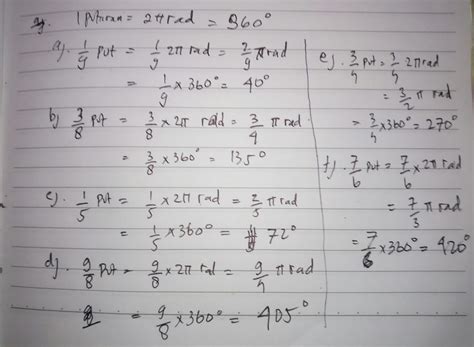 1 putaran = 2π rad = 360°
a). 1/9 put = 1/9 2π rad = 2/9 π rad
= 1/9 × 360° = 40°
b) 3/8 put = 3/8 × 2π rad = 3/4 π rad
= 3/8 × 360° = 135°
c). 1/5 put = 1/5 × 2π rad = 2/5 π rad
= 1/5 × 360° = 72°
d). 9/8 put = 9/8 × 2π rad = 9/4 π rad
= 9/8 × 360° = 405°
e). 3/4 put = 3/4 2π rad
= 3/2 π rad
= 3/4 × 360° = 270°
f). 7/6 put = 7/6 × 2π rad
= 7/3 π rad
= 7/6 × 360° = 420°